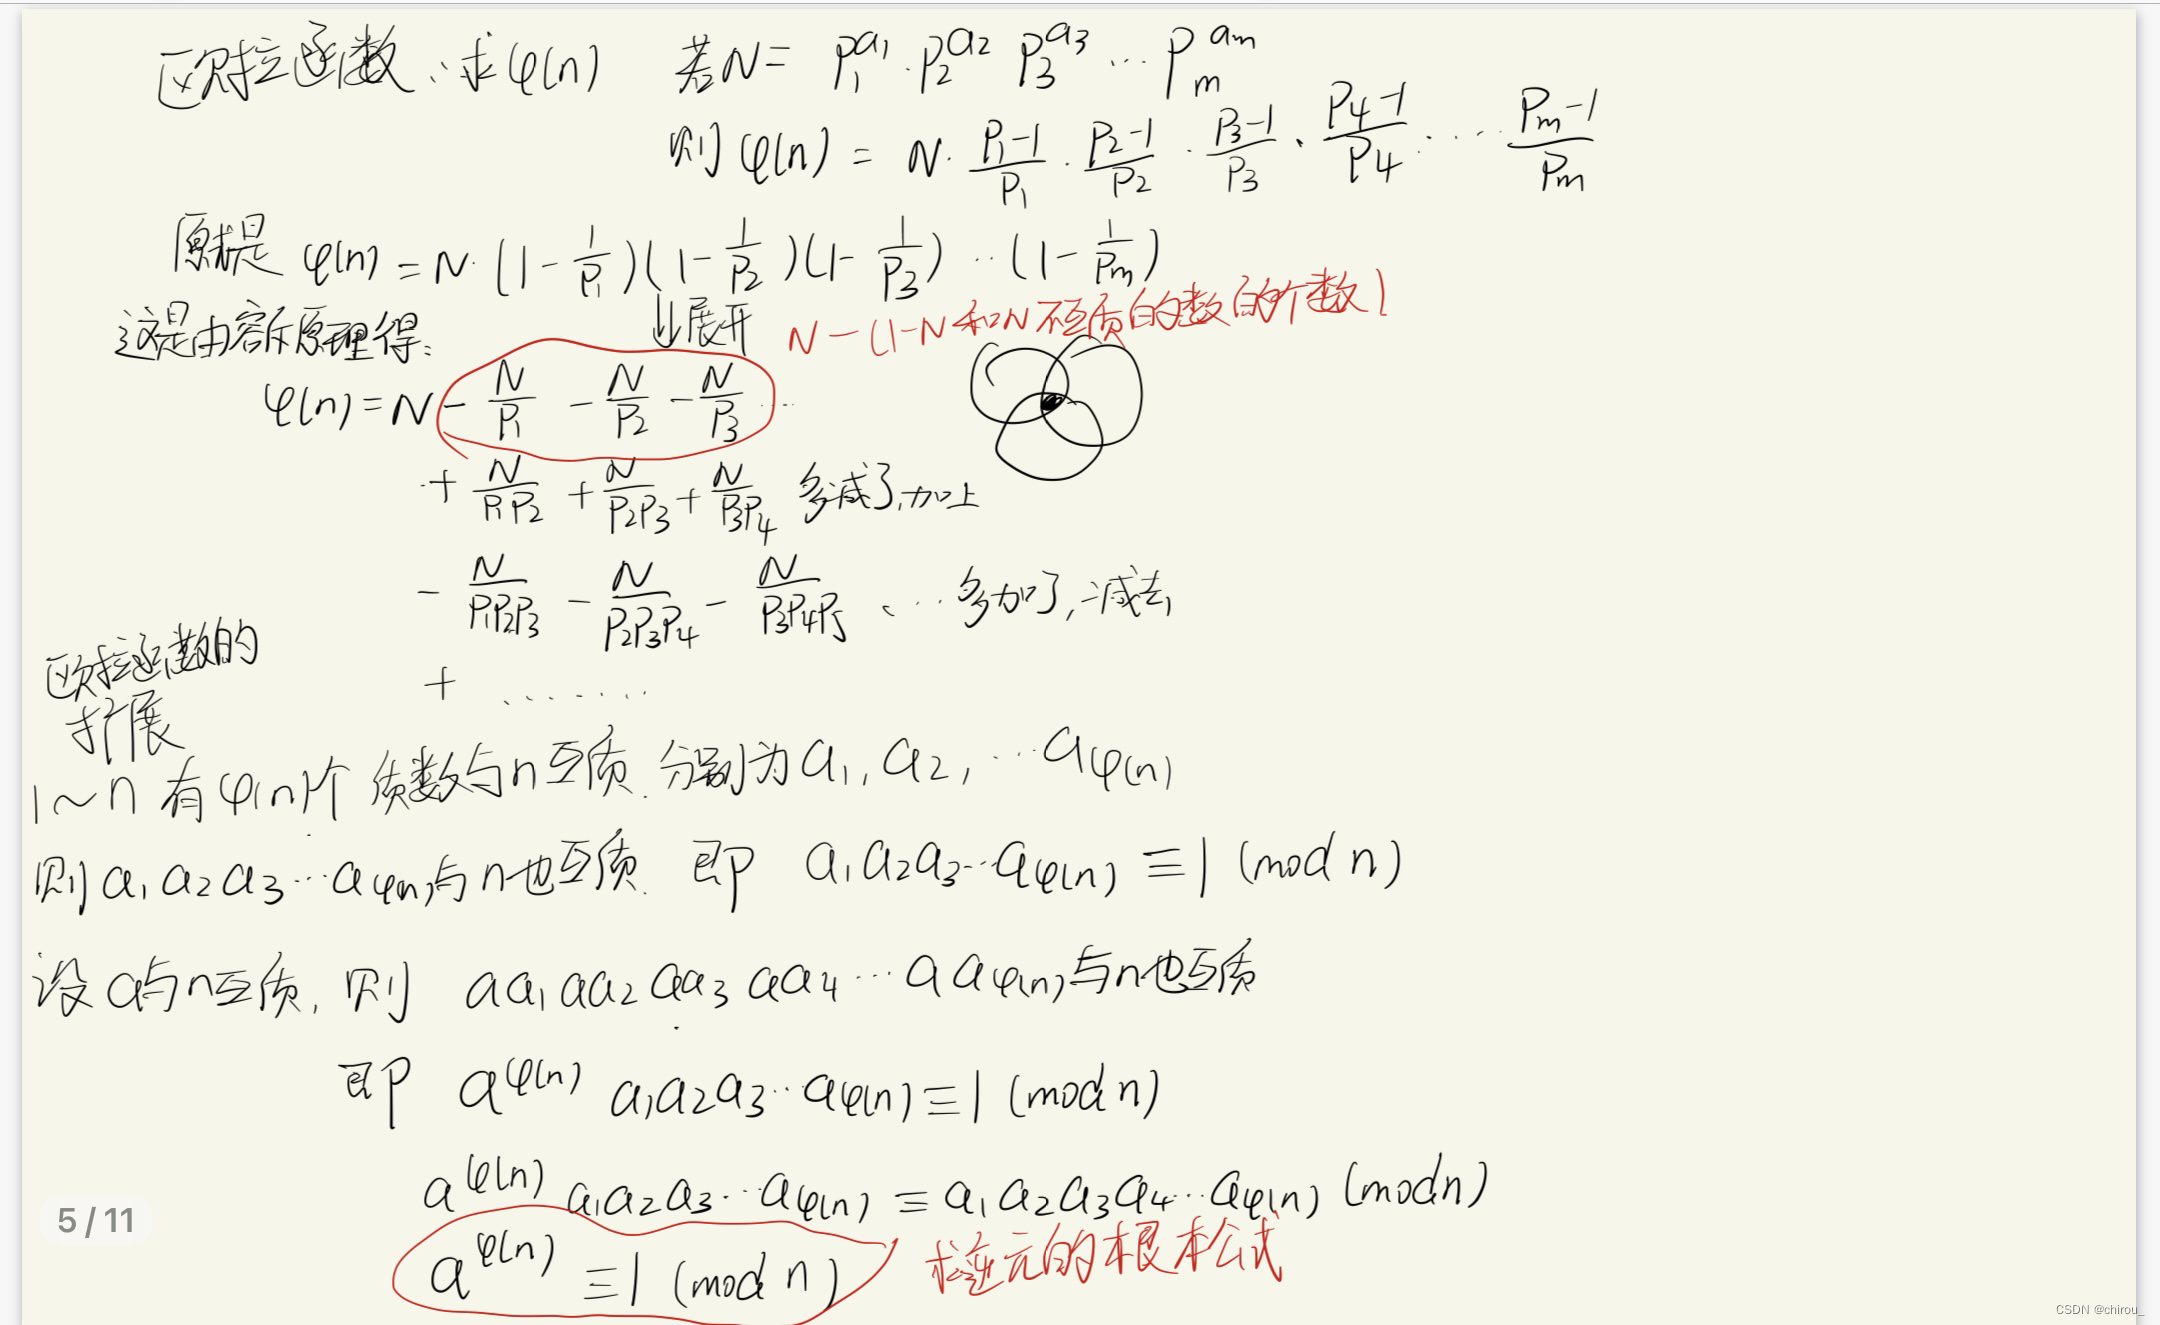 欧拉函数:求φ(n) 若N= P₁^a₁·P₂^a₂ P₃^a₃ … Pₘ^aₘ
则φ(n) = N· (P₁-1)/P₁ · (P₂-1)/P₂ · (P₃-1)/P₃ · (P₄-1)/P₄ …… (Pₘ-1)/Pₘ
φ(n) = N·(1-1/P₁)(1-1/P₂)(1-1/P₃)…(1-1/Pₘ)
↓展开 N-(1-N和N不互质的数的个数)
这是由容斥原理得:
φ(n)=N - N/P₁ - N/P₂ - N/P₃ …
+ N/P₁P₂ + N/P₂P₃ + N/P₃P₄ 多减了,加上
- N/P₁P₂P₃ - N/P₂P₃P₄ - N/P₃P₄P₅ … 多加了,减去
+ ……
欧拉函数的
扩展
1~n 有φ(n)个 质数与n互质. 分别为a₁,a₂,…a_φ(n)
则a₁a₂a₃…a_φ(n)与n也互质. 即 a₁a₂a₃…a_φ(n) ≡1 (mod n)
设a与n互质, 则 aa₁aa₂aa₃aa₄…aa_φ(n)与n也互质
即 a^φ(n) a₁a₂a₃…a_φ(n)≡1 (mod n)
a^φ(n) a₁a₂a₃…a_φ(n) ≡ a₁a₂a₃a₄…a_φ(n) (modn)
a^φ(n) ≡1 (mod n) 求逆元的根本公式
5 / 11
CSDN @chirou_